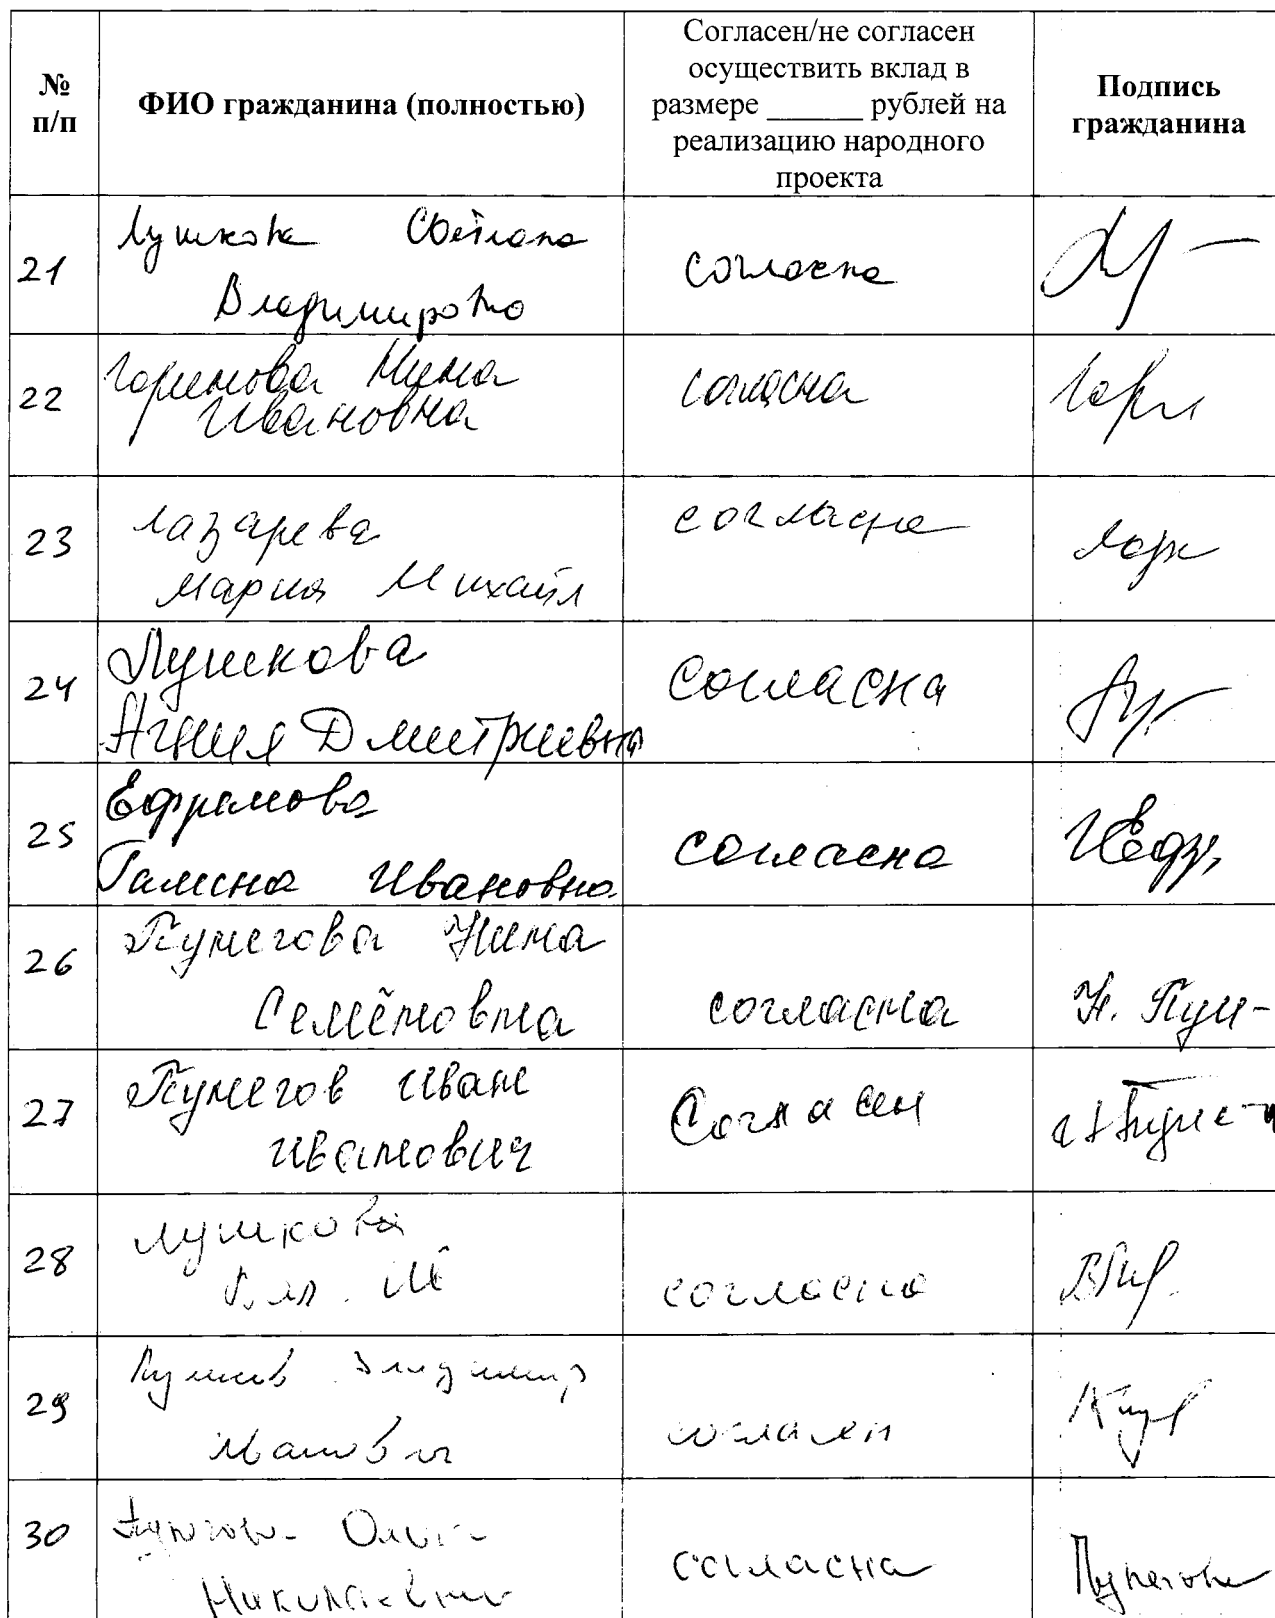 № п/п
ФИО гражданина (полностью)
Согласен/не согласен
осуществить вклад в
размере ______ рублей на
реализацию народного
проекта
Подпись
гражданина
21
Лушкова Светлана
Владимировна
согласна
22
Горинова Нина
Ивановна
согласна
Гори
23
Лазарева
Мария Михайл
согласна
Лазр
24
Лушкова
Агния Дмитриевна
согласна
25
Ефремова
Галина Ивановна
согласна
ГЕфр
26
Пунегова Нина
Семёновна
согласна
Н. Пун-
27
Пунегов Иван
Иванович
Согласен
28
Лушкова
согласна
29
Владимир
Иванович
согласен
30
Пунегова Ольга
Николаевна
согласна
Пунегова